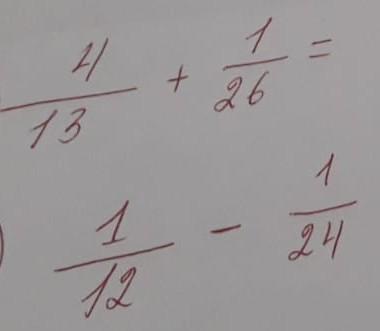 4/13 + 1/26 =
) 1/12 - 1/24